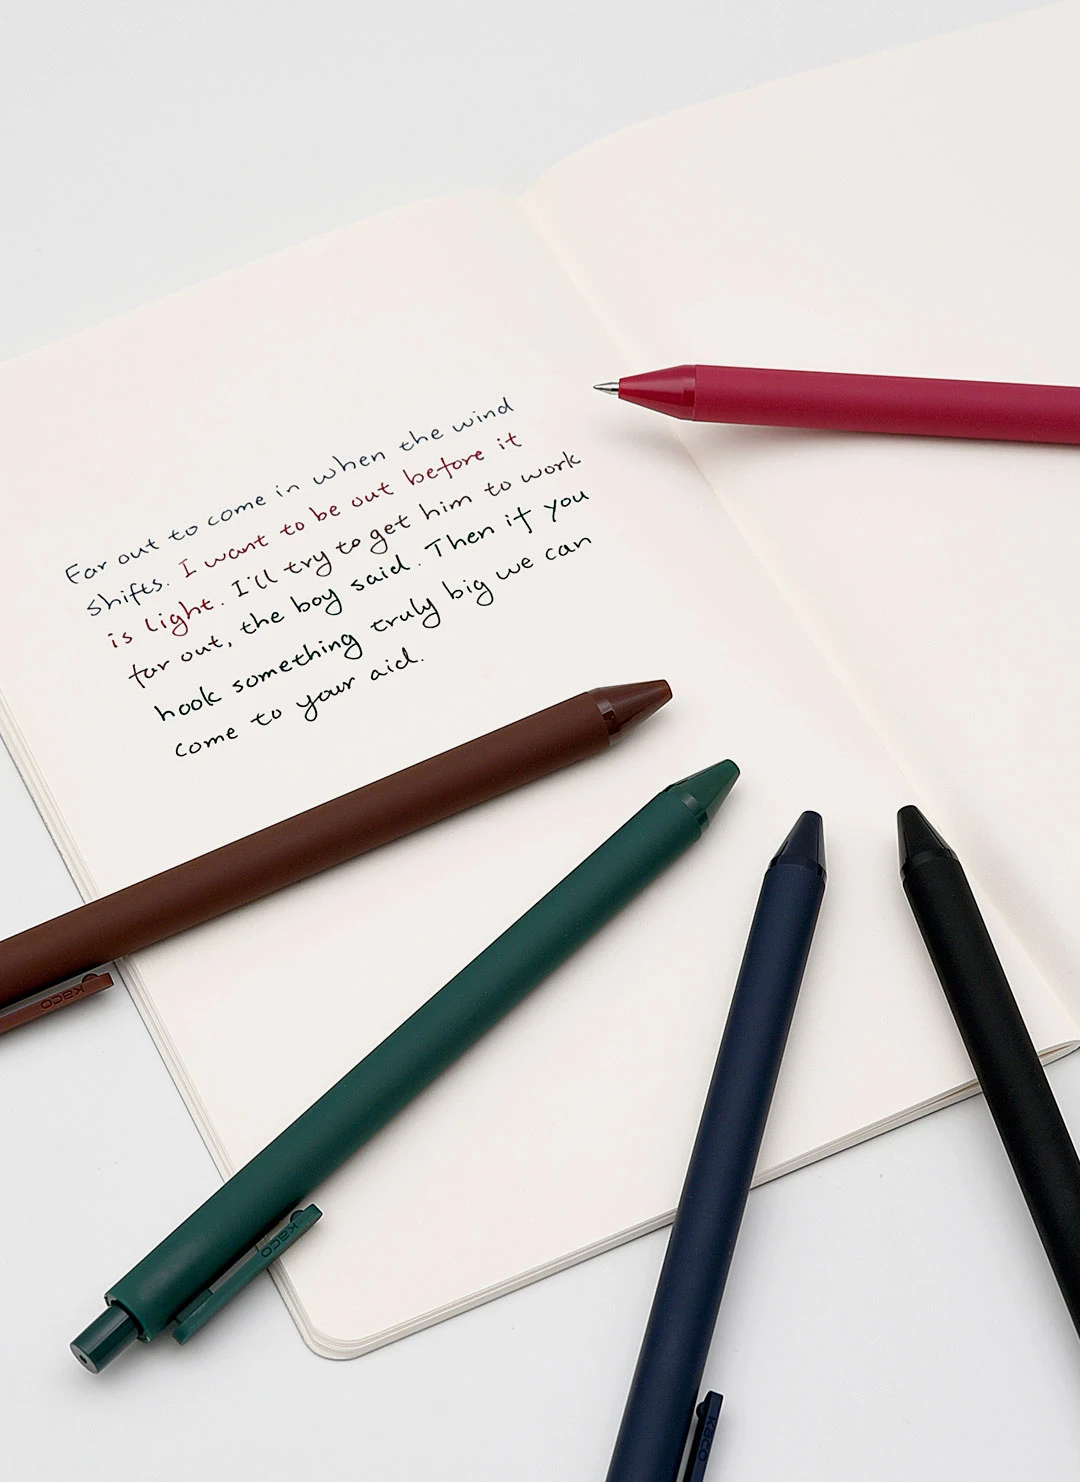 Far out to come in when the wind
shifts. I want to be out before it
is light. I'll try to get him to work
far out, the boy said. Then if you
hook something truly big we can
come to your aid.
kaco
kaco
kaco